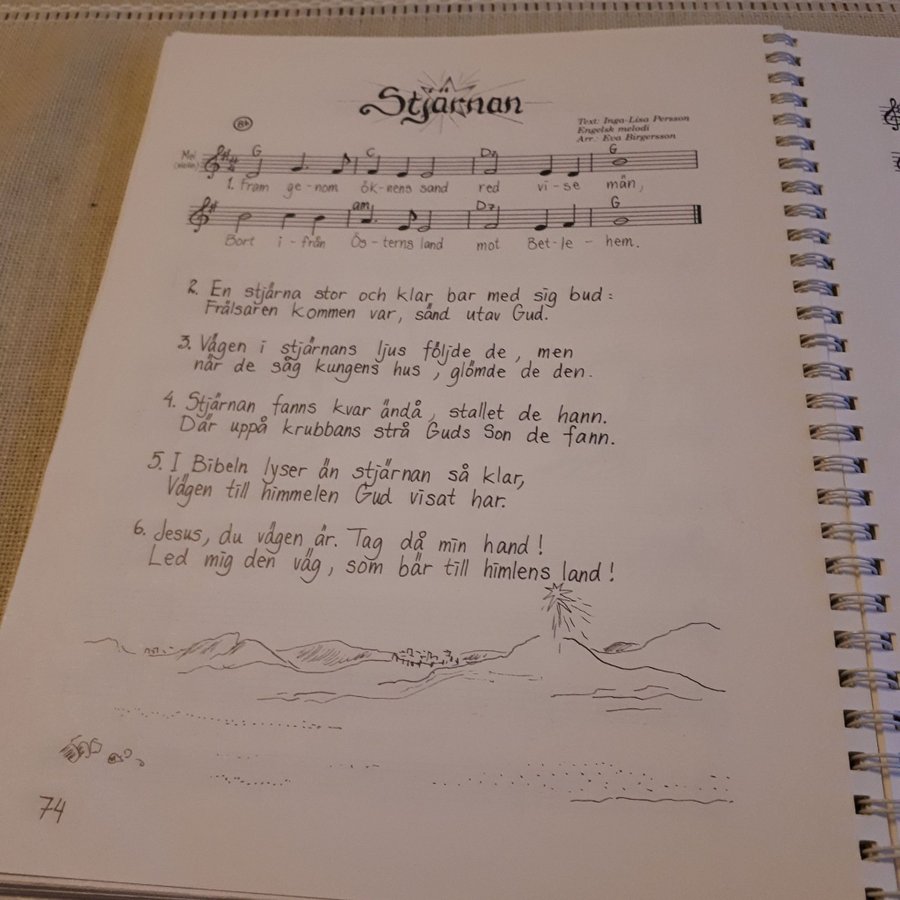 Stjärnan
Text: Inga-Lisa Persson
Engelsk melodi
Arr.: Eva Birgersson
G C D7 G
1. Fram ge-nom ök-nens sand red vi-se män,
am D7 G
Bort i-från Ös-terns land mot Bet-le-hem.
2. En stjärna stor och klar bar med sig bud:
Frälsaren kommen var, sänd utav Gud.
3. Vägen i stjärnans ljus följde de, men
när de såg kungens hus, glömde de den.
4. Stjärnan fanns kvar ändå, stallet de hann.
Där uppå krubbans strå Guds Son de fann.
5. I Bibeln lyser än stjärnan så klar,
Vägen till himmelen Gud visat har.
6. Jesus, du vägen är. Tag då min hand!
Led mig den väg, som bär till himlens land!
74